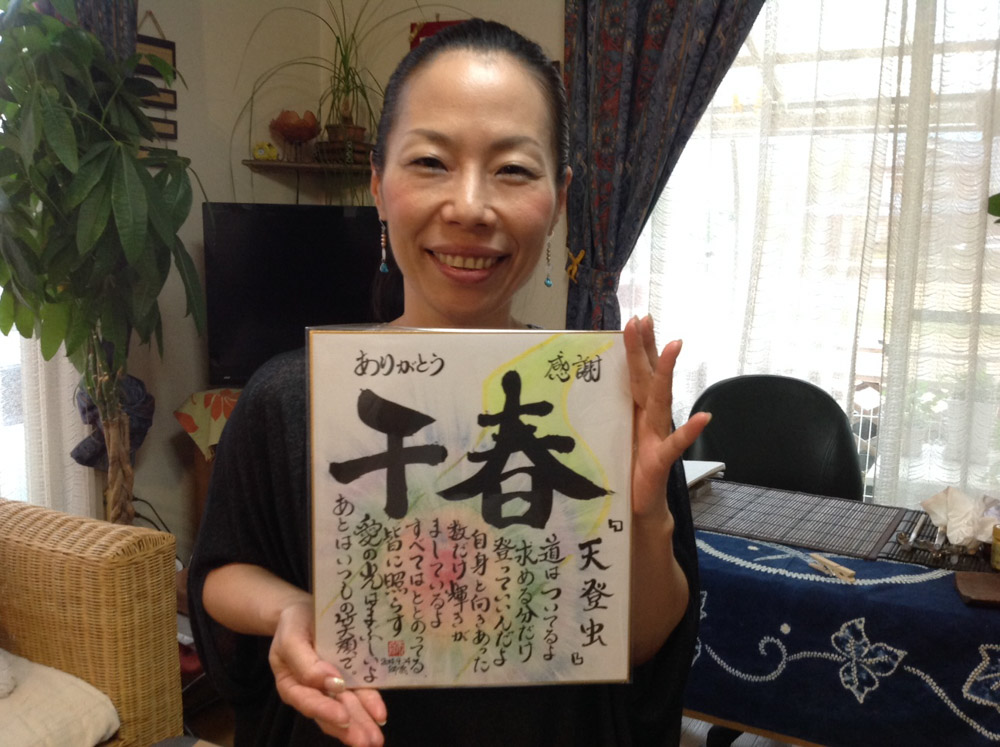 ありがとう
感謝
千春
『天登虫』
道はついてるよ
求める分だけ
登っていいんだよ
自身と向きあった
数だけ輝きが
ましているよ
すべてはととのってる
皆に照らす
の光はまぶしいよ
あとはいつもの笑顔で。